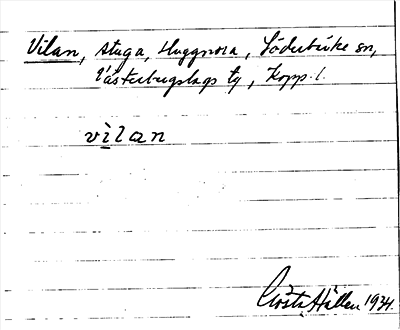 Vilan, stuga, Huggnora, Söderbärke sn,
Västerbergslags tg, Kopp. l.
vilan
Gösta Hallen 1934.